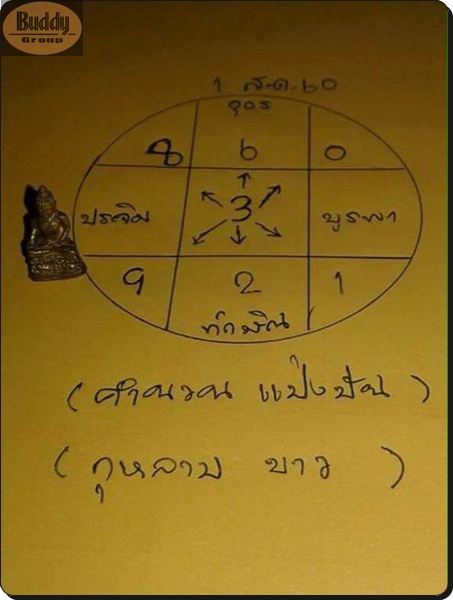 Buddy
Group
1 ส.ค. ๖๐
อุดร
8 ๖ 0
ประจิม 3 บูรพา
9 2 1
ทักษิณ
(คำนวณ แบ่งปัน)
(กุหลาบ ขาว)